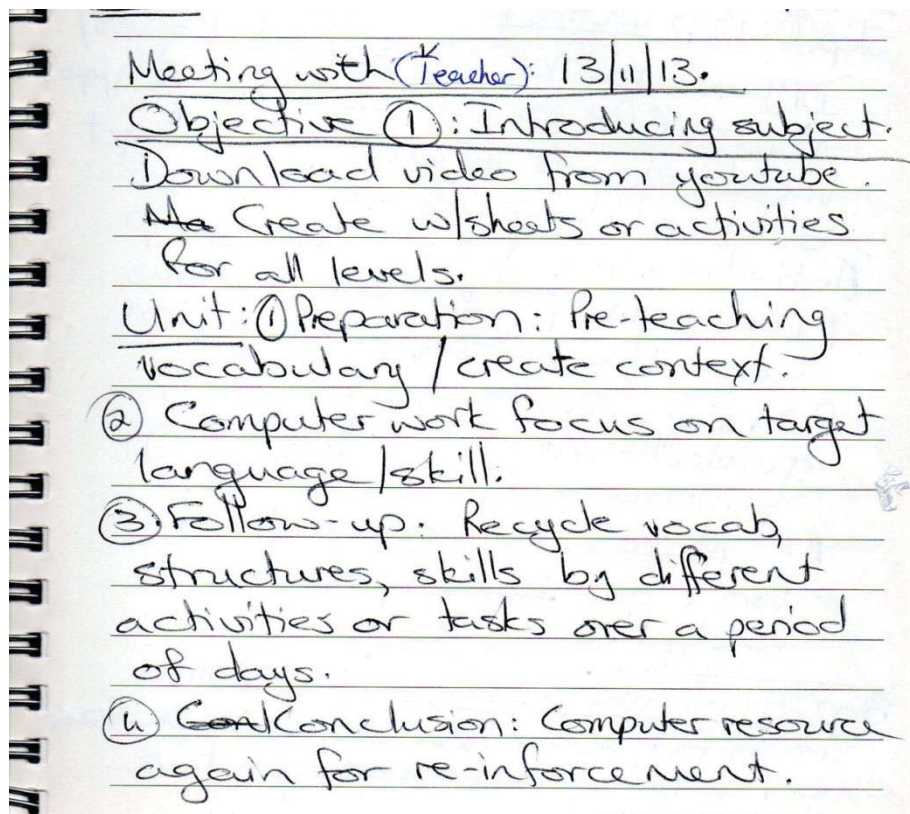 Meeting with (Teacher): 13/11/13.
Objective ①: Introducing subject.
Download video from youtube.
Create w/sheets or activities
for all levels.
Unit: ① Preparation: Pre-teaching
vocabulary / create context.
② Computer work focus on target
language/skill.
③. Follow-up. Recycle vocab,
structures, skills by different
activities or tasks over a period
of days.
④ Conclusion: Computer resource
again for re-inforcement.